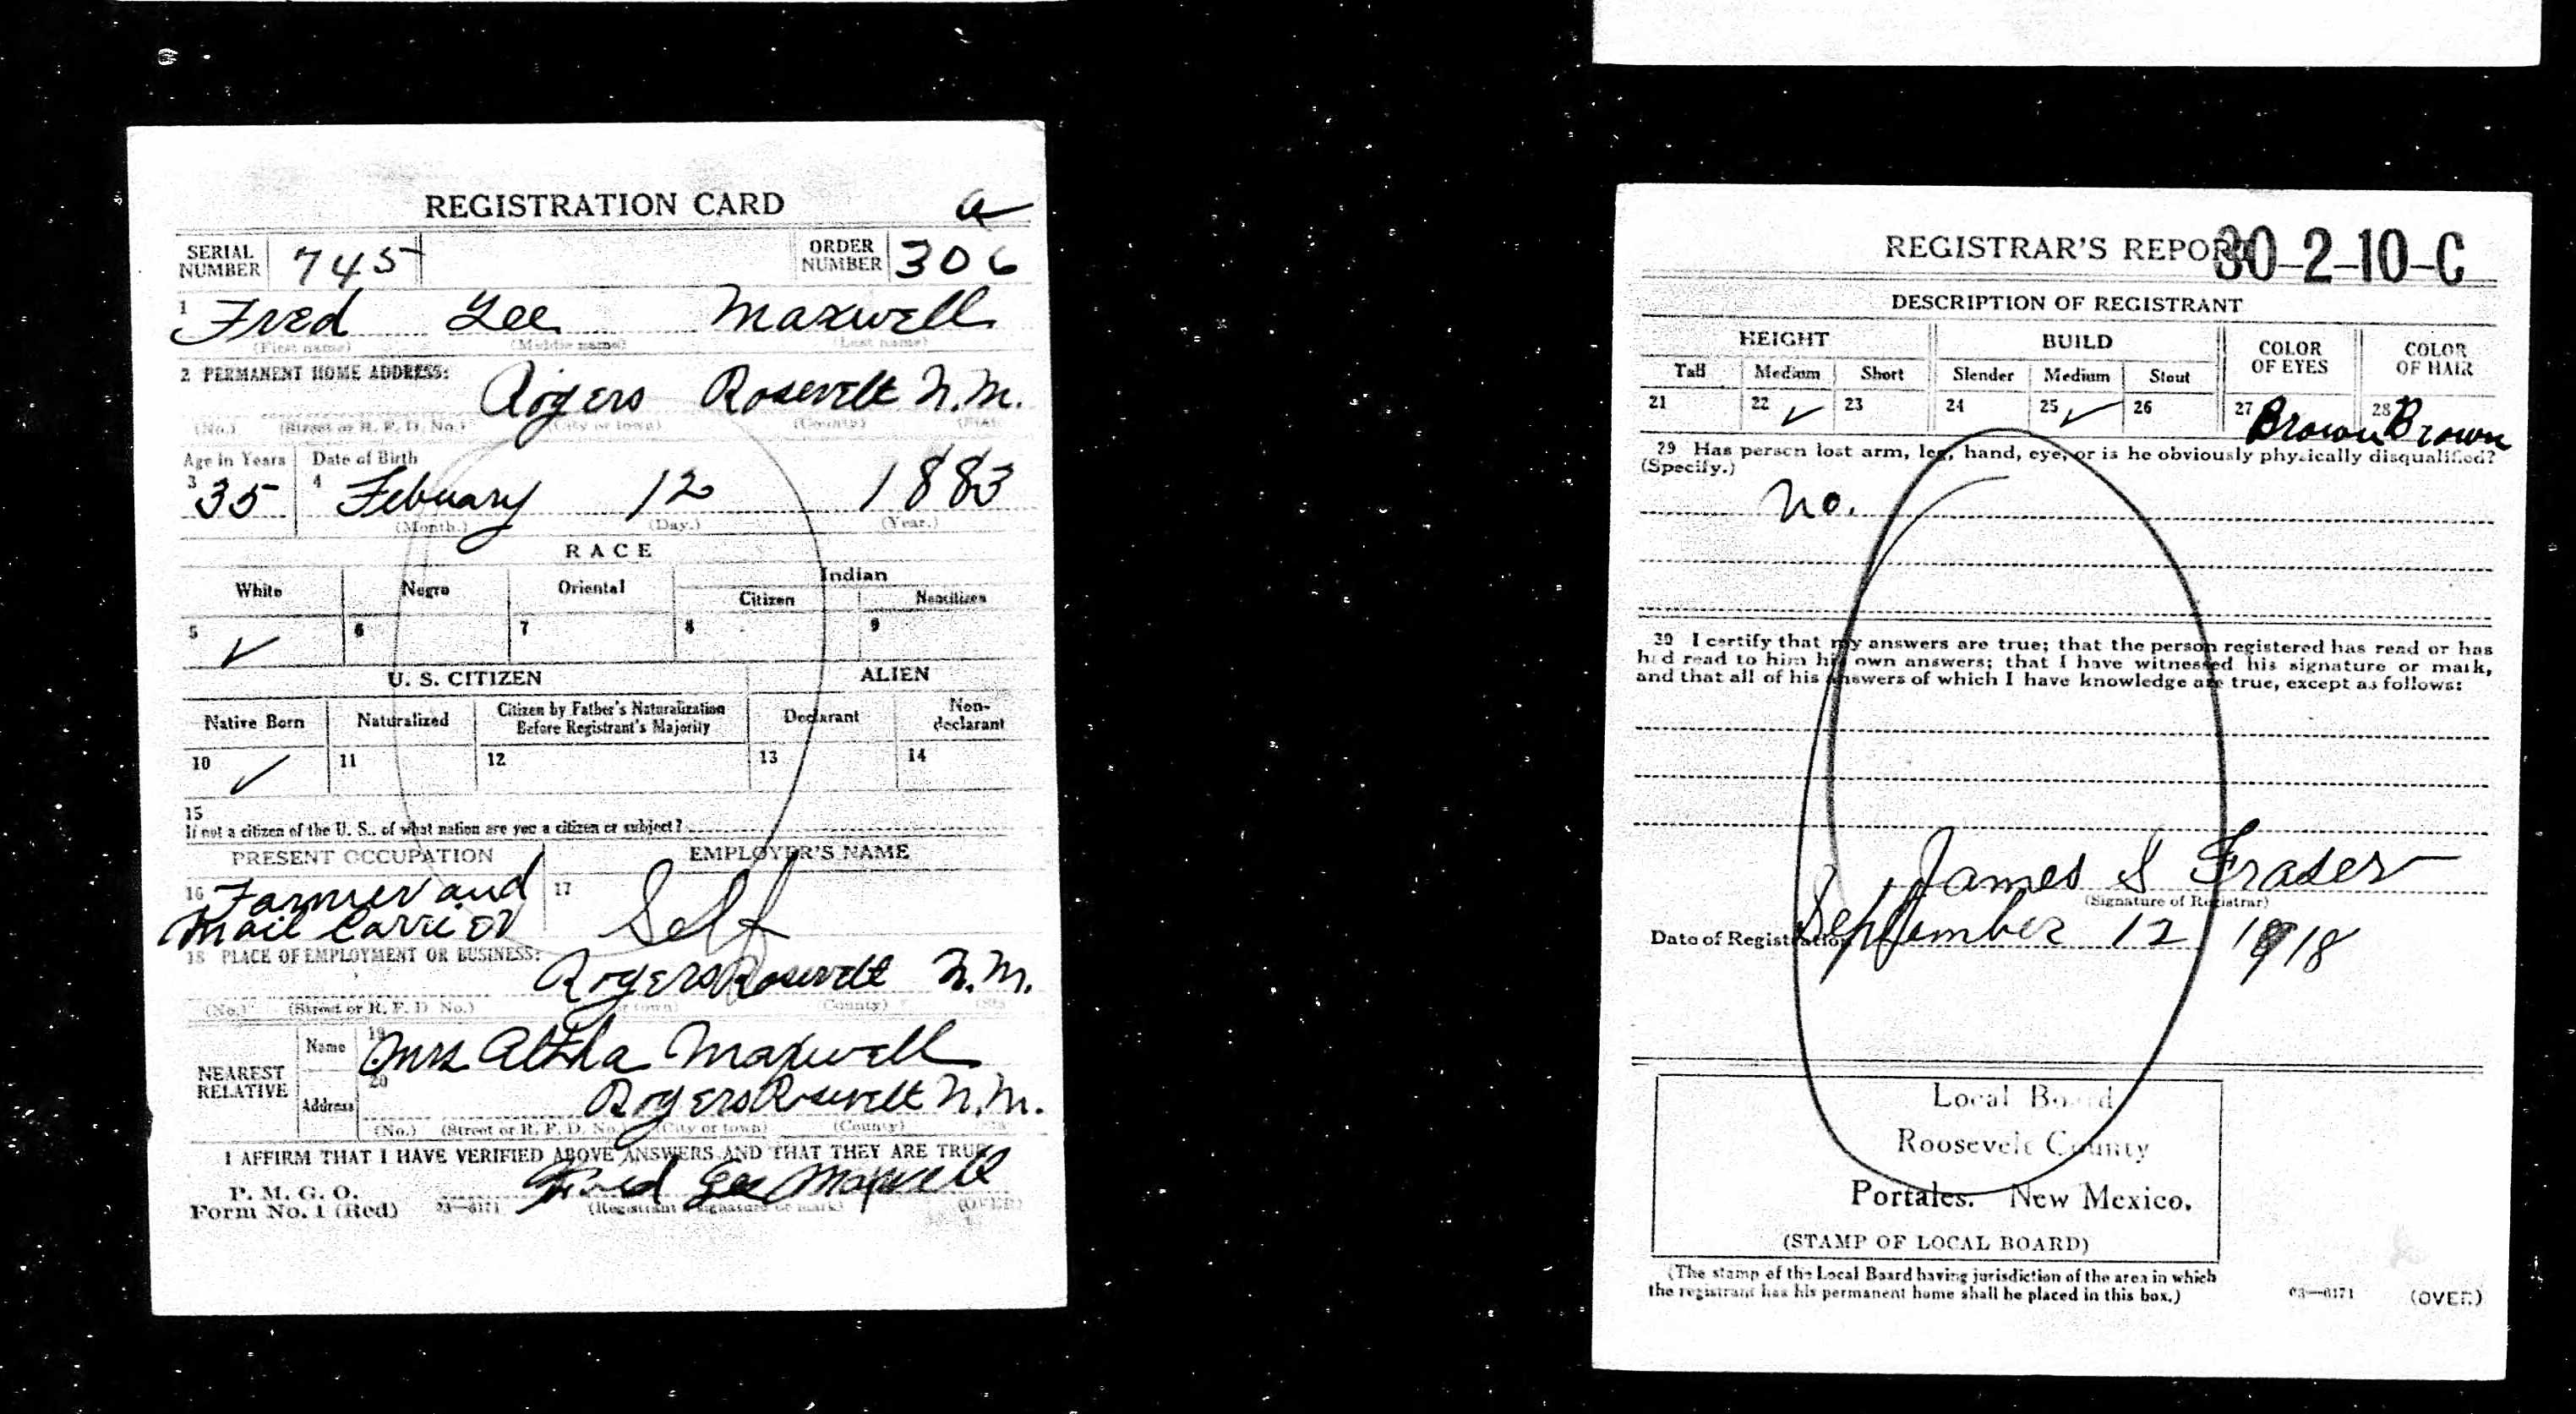 REGISTRATION CARD
SERIAL NUMBER 745 ORDER NUMBER 306
1 Fred Lee Maxwell
(First name) (Middle name) (Last name)
2 PERMANENT HOME ADDRESS:
Rogers Rosevelt N.M.
(No.) (Street or R. F. D. No.) (City or town) (County)
Age in Years Date of Birth
3 35 4 Febuary 12 1883
(Month.) (Day.) (Year.)
RACE
White Negro Oriental Indian
Citizen Noncitizen
5 ✓ 6 7 8 9
U. S. CITIZEN ALIEN
Native Born Naturalized Citizen by Father's Naturalization Before Registrant's Majority Declarant Non-declarant
10 ✓ 11 12 13 14
15
If not a citizen of the U. S., of what nation are you a citizen or subject?
PRESENT OCCUPATION EMPLOYER'S NAME
16 Farmer and 17 Self
Mail Carrier
18 PLACE OF EMPLOYMENT OR BUSINESS:
Rogers Rosevelt N.M.
(No.) (Street or R. F. D. No.) (County)
NEAREST RELATIVE
Name 19 Mrs Altha Maxwell
Address 20 Rogers Rosevelt N.M.
(No.) (Street or R. F. D. No.) (City or town) (County)
I AFFIRM THAT I HAVE VERIFIED ABOVE ANSWERS AND THAT THEY ARE TRUE
P. M. G. O.
Form No. 1 (Red) 03—6171 Fred Lee Maxwell
(Registrant's signature or mark) (OVER)
REGISTRAR'S REPORT 30-2-10-C
DESCRIPTION OF REGISTRANT
HEIGHT BUILD COLOR OF EYES COLOR OF HAIR
Tall Medium Short Slender Medium Stout
21 22 ✓ 23 24 25 ✓ 26 27 Brown 28 Brown
29 Has person lost arm, leg, hand, eye, or is he obviously physically disqualified?
(Specify.)
No.
30 I certify that my answers are true; that the person registered has read or has
had read to him his own answers; that I have witnessed his signature or mark,
and that all of his answers of which I have knowledge are true, except as follows:
James S Fraser
(Signature of Registrar)
Date of Registration September 12 1918
Local Board
Roosevelt County
Portales. New Mexico.
(STAMP OF LOCAL BOARD)
(The stamp of the Local Board having jurisdiction of the area in which
the registrant has his permanent home shall be placed in this box.)
03—6171 (OVER)